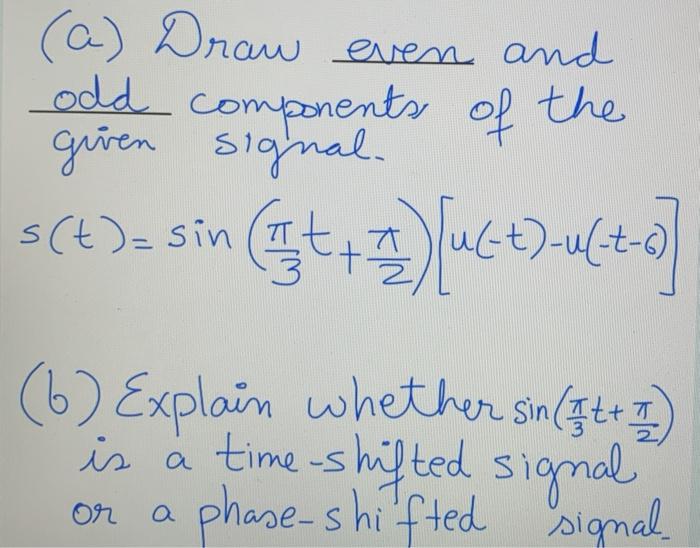 (a) Draw even and
odd components of the
given signal.
s(t) = sin (π/3 t + π/2) [u(-t) - u(-t-6)]
(b) Explain whether sin(π/3 t + π/2)
is a time-shifted signal
or a phase-shifted signal.